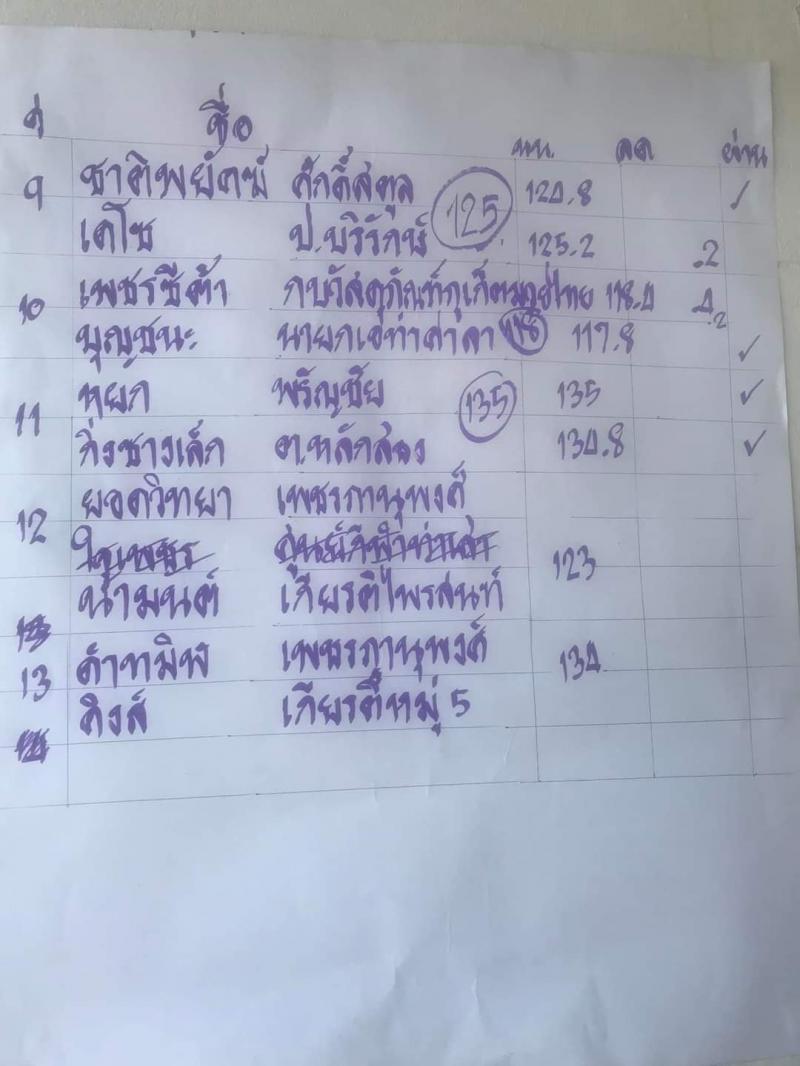 คู่ ชื่อ นน. ลด ผ่าน
9 ชาติพยัคฆ์ ศักดิ์สตูล 125 124.8 ✓
เดโช ป.บริรักษ์ 125.2 .2
10 เพชรซีต้า กบวัสดุภัณฑ์ภูเก็ตมวยไทย 118.4 .4 .2
บุญชนะ นายกเอท่าศาลา 118 117.8 ✓
11 หยก พรัญชัย 135 135 ✓
กิ่งซางเล็ก ต.หลักสอง 134.8 ✓
12 ยอดวิทยา เพชรภานุพงศ์
น้ำมนต์ เกียรติไพรสนฑ์ 123
13 คำทมิฬ เพชรภานุพงศ์ 134
คิงส์ เกียรติหมู่ 5